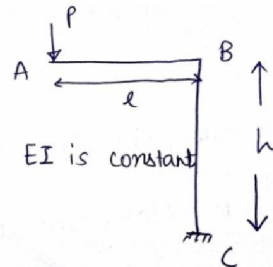 P
A B
l
EI is constant
h
C